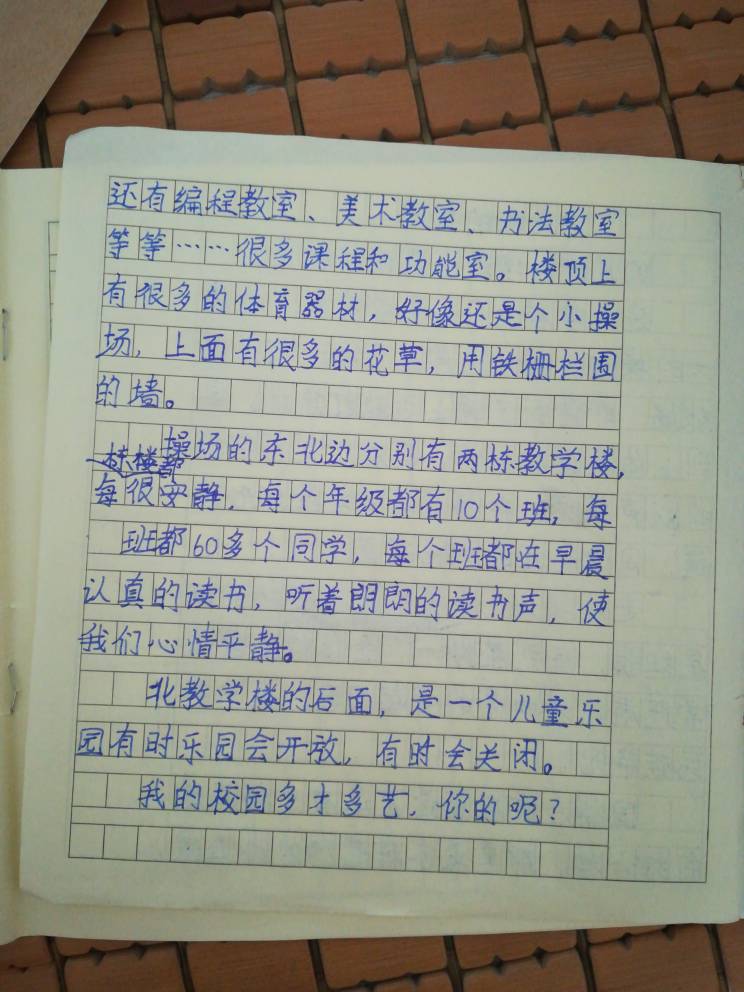 还有编程教室、美术教室、书法教室
等等……很多课程和功能室。楼顶上
有很多的体育器材，好像还是个小操
场，上面有很多的花草，用铁栅栏围
的墙。
操场的东北边分别有两栋教学楼，
栋楼都
每很安静，每个年级都有10个班，每
班都60多个同学，每个班都在早晨
认真的读书，听着朗朗的读书声，使
我们心情平静。
北教学楼的后面，是一个儿童乐
园有时乐园会开放，有时会关闭。
我的校园多才多艺，你的呢？